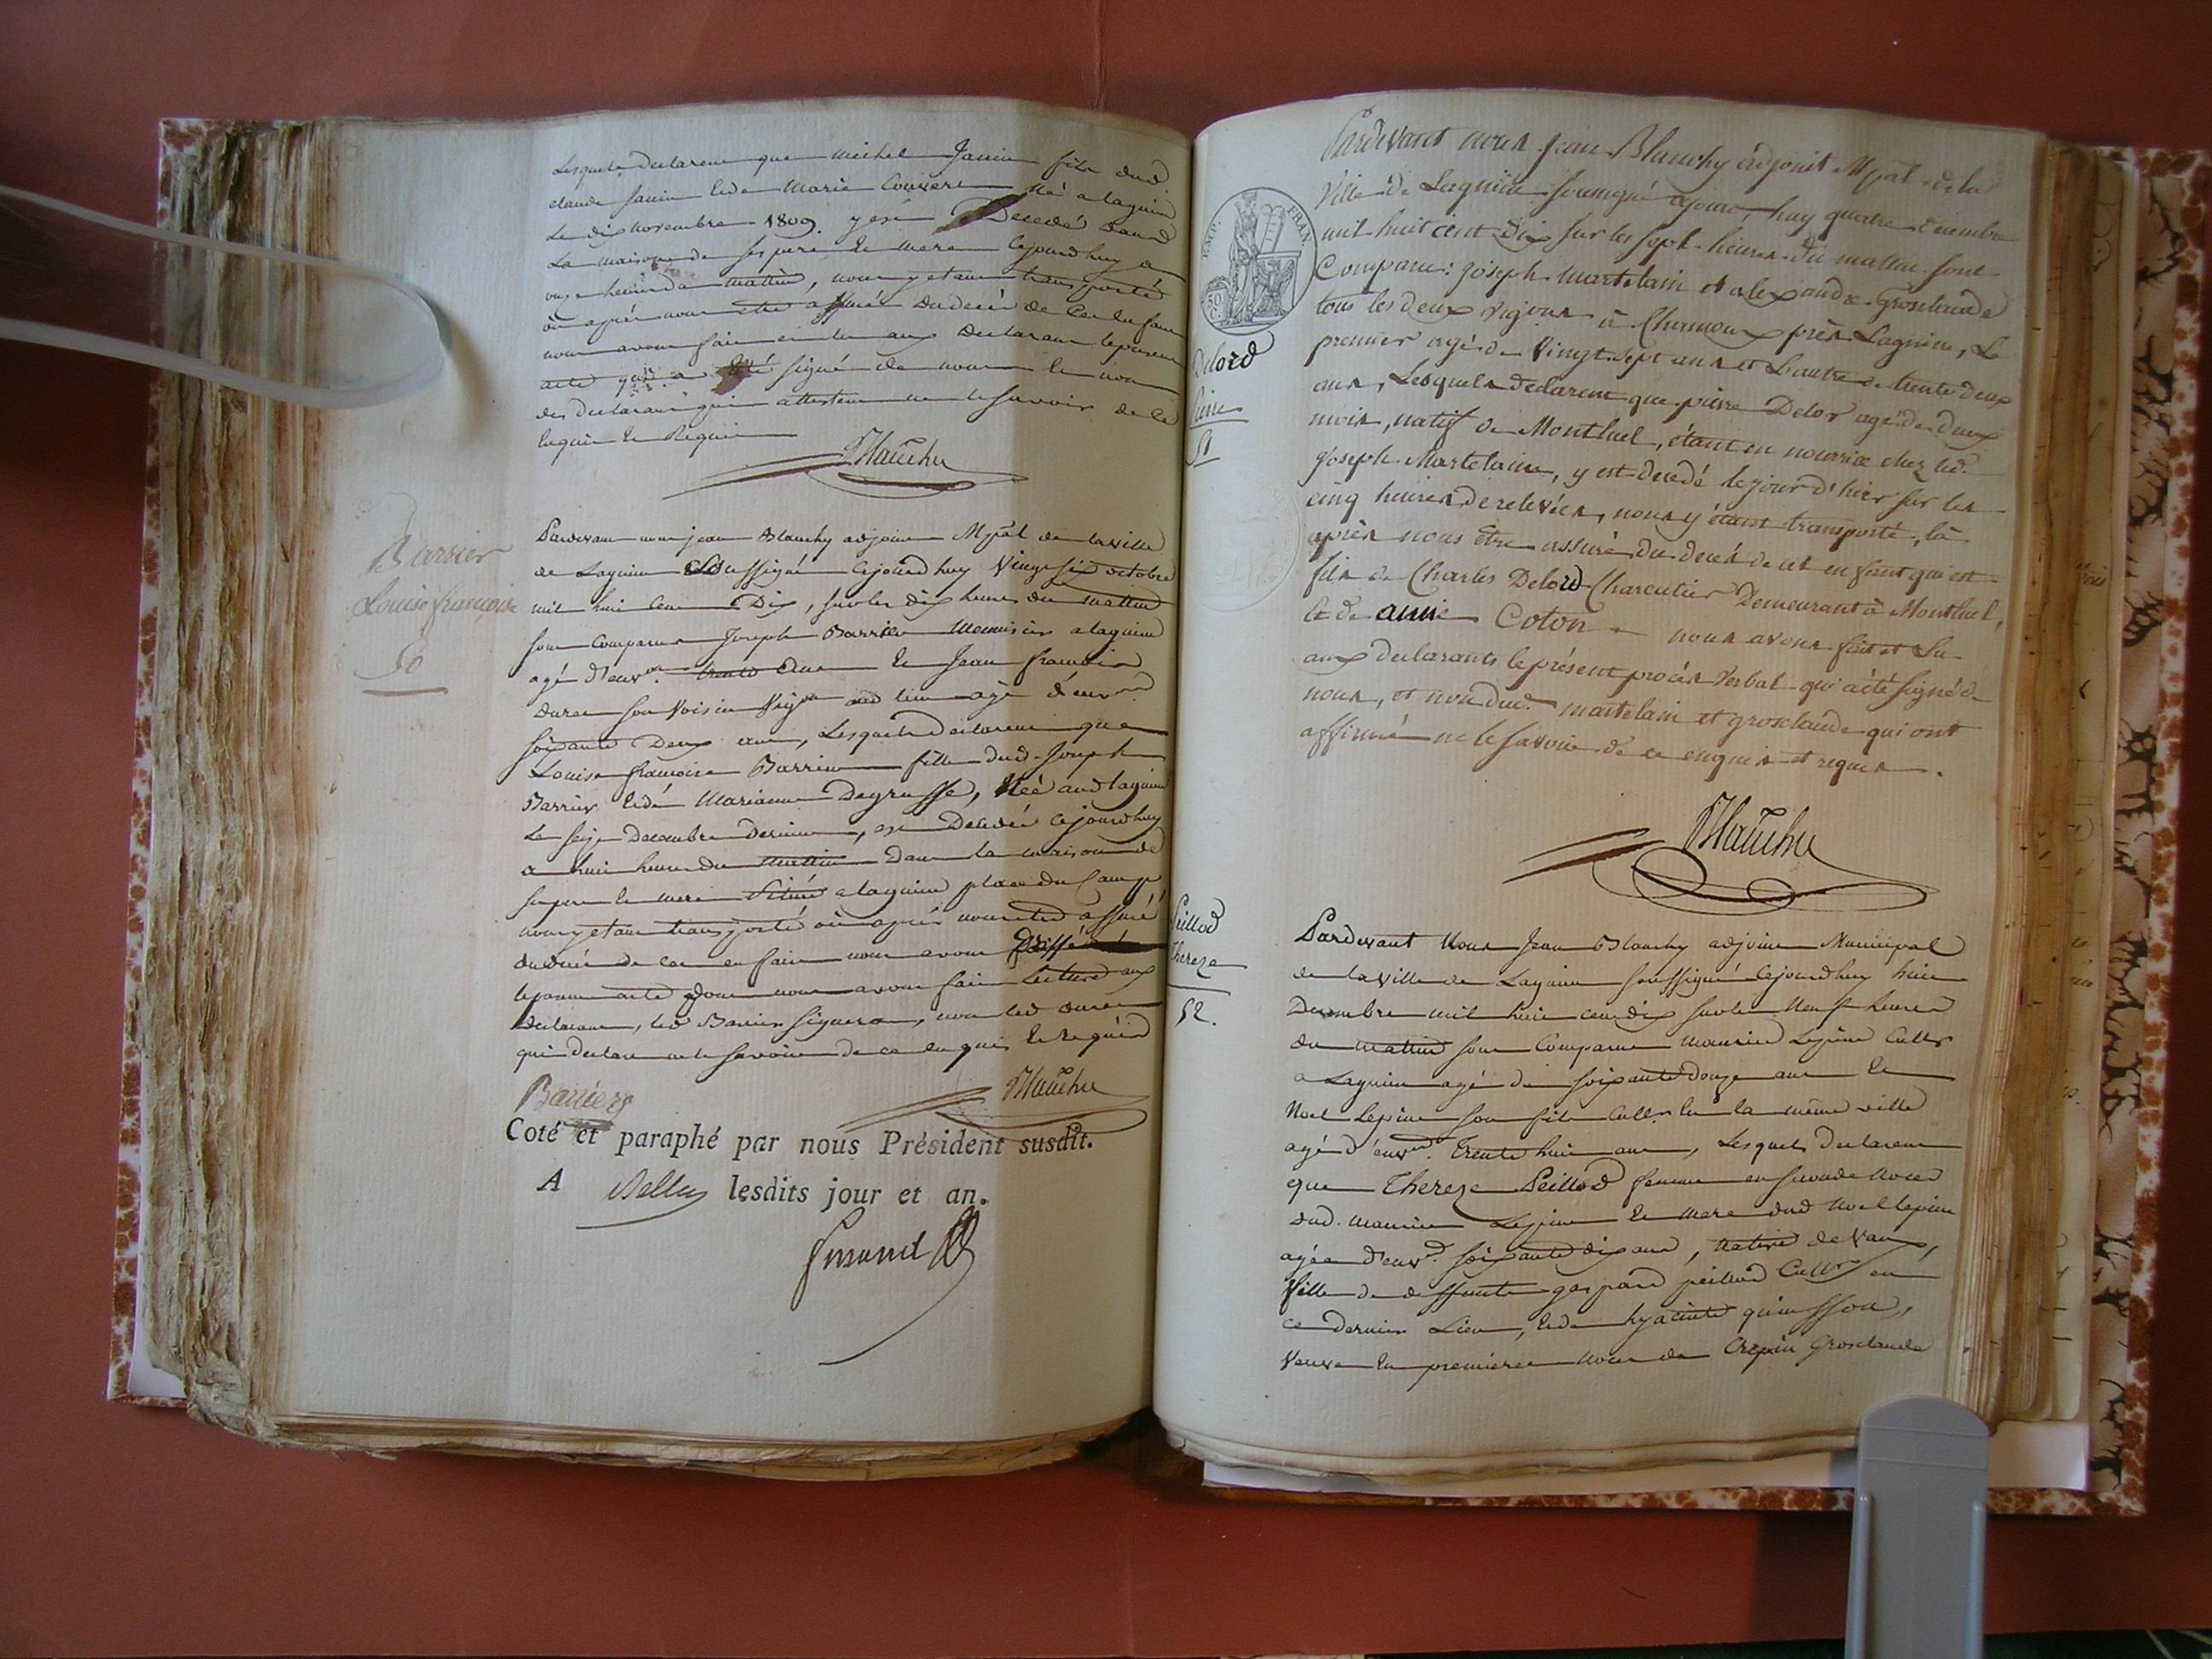 Lesquels declarent que michel Janin fils dud
claude Janin et de Marie Couvert né a lagnieu
Le dix novembre 1809. y est Decedé dans
La maison de ses pere et mere cejourdhuy a
onze heures du mattin, nous y etant transporté
où aprés nous etre assuré du decés de cet enfant
nous avons fait lecture aux declarants le present
acte qui a été signé de nous et non
des declarants qui attestent ne le savoir de ce
enquis et Requis
Blanchy
Barrier
Louise françoise
50
Pardevant nous jean Blanchy adjoint Mpãl de la ville
de Lagnieu Soussigné cejourdhuy Vingt six octobre
mil huit cent Dix, sur les dix heures du mattin
sont comparus Joseph Barrier Menuisier a lagnieu
agé d'env.on trente ans et Jean francois
Duret son Voisin aud lieu agé d'env.on
soixante Deux ans, Lesquels declarent que
Louise francoise Barrier fille dud. Joseph
Barrier et de Marianne Degrusse, Née aud lagnieu
Le seize Decembre dernier, est Decedée cejourdhuy
a huit heures du mattin Dans la maison de
ses pere et mere Située a lagnieu place du Camp
nous y etant transporté où aprés nous etre assuré
du decés de cet enfant nous avons
le present acte dont nous avons fait Lecture aux
declarants, led Barrier signera, non led Duret
qui declare ne le savoir de ce enquis et requis
Barrier Blanchy
Coté et paraphé par nous Président susdit.
A Belley lesdits jour et an.
EMP. FRAN.
50 C.
Delord
Pierre
51
Pardevant nous Jean Blanchy adjoint Mpãl de la
Ville de Lagnieu soussigné ajourd'huy quatre décembre
mil huit cent dix sur les sept heures du mattin sont
Comparu: joseph Martelain et alexandre Grosclaude
tous les deux vignr à Chamoux près Lagnieu, Le
premier agé de Vingt sept ans et L'autre de trente deux
ans, Lesquels declarent que pierre Delor agé de deux
mois, natif de Montluel, étant en nourrice chez led.
joseph Martelain, y est decedé le jour d'hier sur les
cinq heures de relevées, nous y étant transporté, là
après nous être assuré du decès de cet enfant qui est
fils de Charles Delord Charcutier Demeurant à Montluel,
et de anne Coton nous avons fait et Lu
aux declarants le présent procès Verbal qui a été signé de
nous, et non dud. martelain et grosclaude qui ont
affirmé ne le savoir de ce enquis et requis.
Blanchy
Peillod
Thereze
52.
Pardevant Nous Jean Blanchy adjoint Municipal
de la ville de Lagnieu soussigné cejourdhuy huit
Decembre mil huit cent dix sur les Neuf heures
du mattin sont Comparus maurice Lepine Cultr
a Lagnieu agé de soixante douze ans et
Noel Lepine son fils Cultr en la même ville
agé d'env.on Trente huit ans, Lesquels declarent
que Thereze Peillod femme en seconde Noces
dud. maurice Lepine et mere dud Noel lepine
agée d'env.on soixante dix ans, Native de Vaux,
fille de deffunts gaspard peillod Cultr en
ce dernier Lieu, et de hyacinte quinsson,
Veuve en premieres noces de Crepin Grosclaude